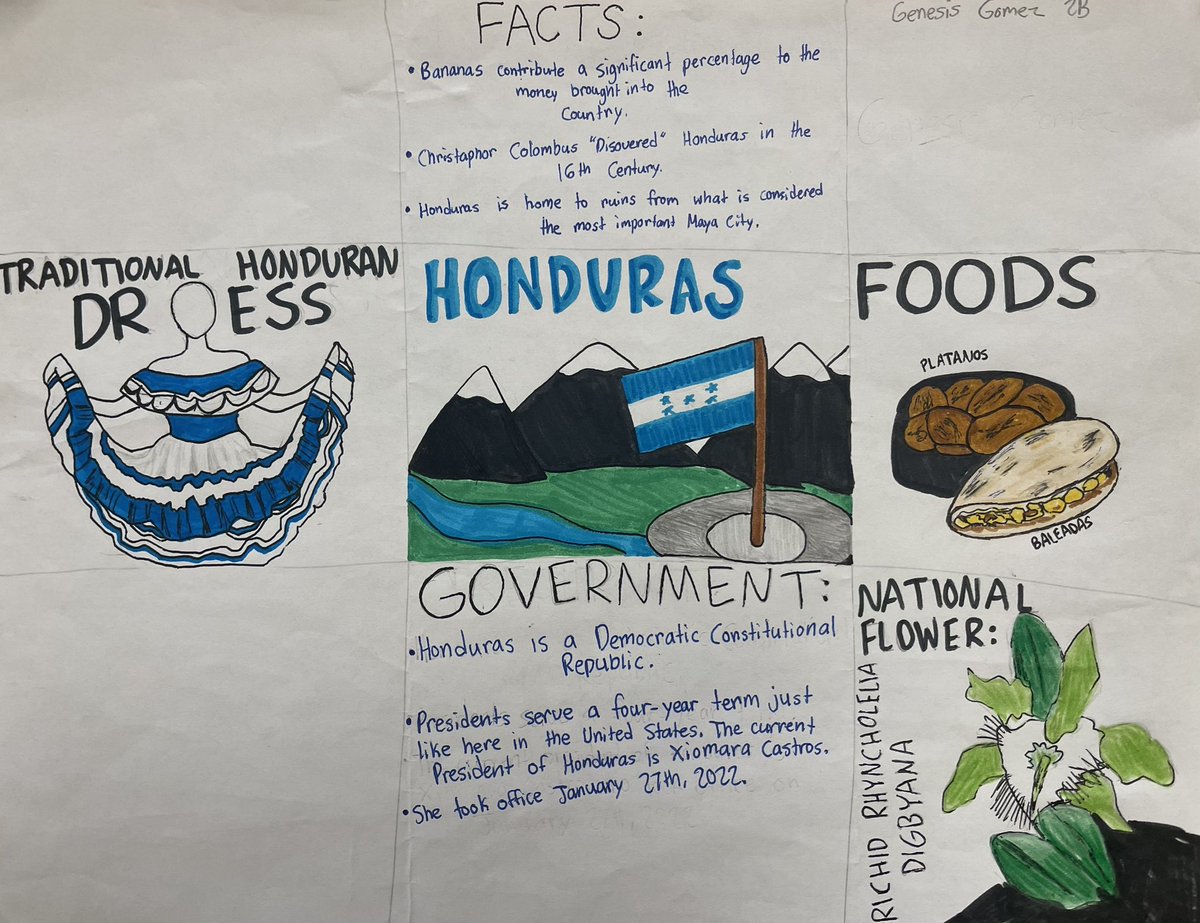 Genesis Gomez 2B
FACTS:
• Bananas contribute a significant percentage to the
money brought into the
Country.
• Christaphor Colombus "Disovered" Honduras in the
16th Century.
• Honduras is home to ruins from what is considered
the most important Maya City.
TRADITIONAL HONDURAN
DRESS
HONDURAS
FOODS
PLATANOS
BALEADAS
GOVERNMENT:
• Honduras is a Democratic Constitutional
Republic.
• Presidents serve a four-year term just
like here in the United States. The current
President of Honduras is Xiomara Castros.
• She took office January 27th, 2022.
NATIONAL
FLOWER:
RICHID RHYNCHOLELIA
DIGBYANA